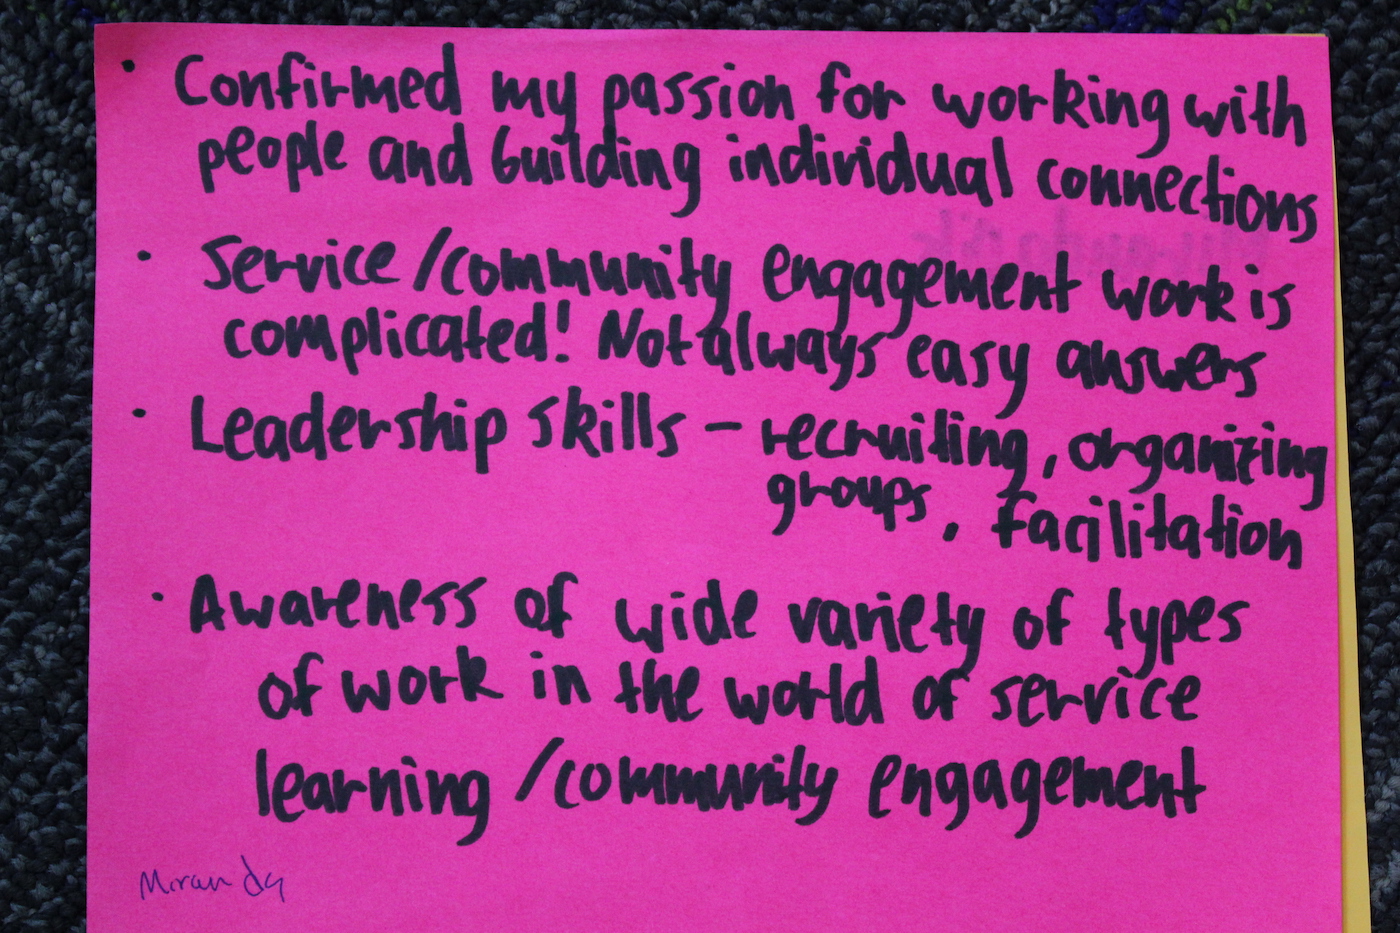 • Confirmed my passion for working with
people and building individual connections
• Service/community engagement work is
complicated! Not always easy answers
• Leadership skills – recruiting, organizing
groups, facilitation
• Awareness of wide variety of types
of work in the world of service
learning/community engagement
Miranda